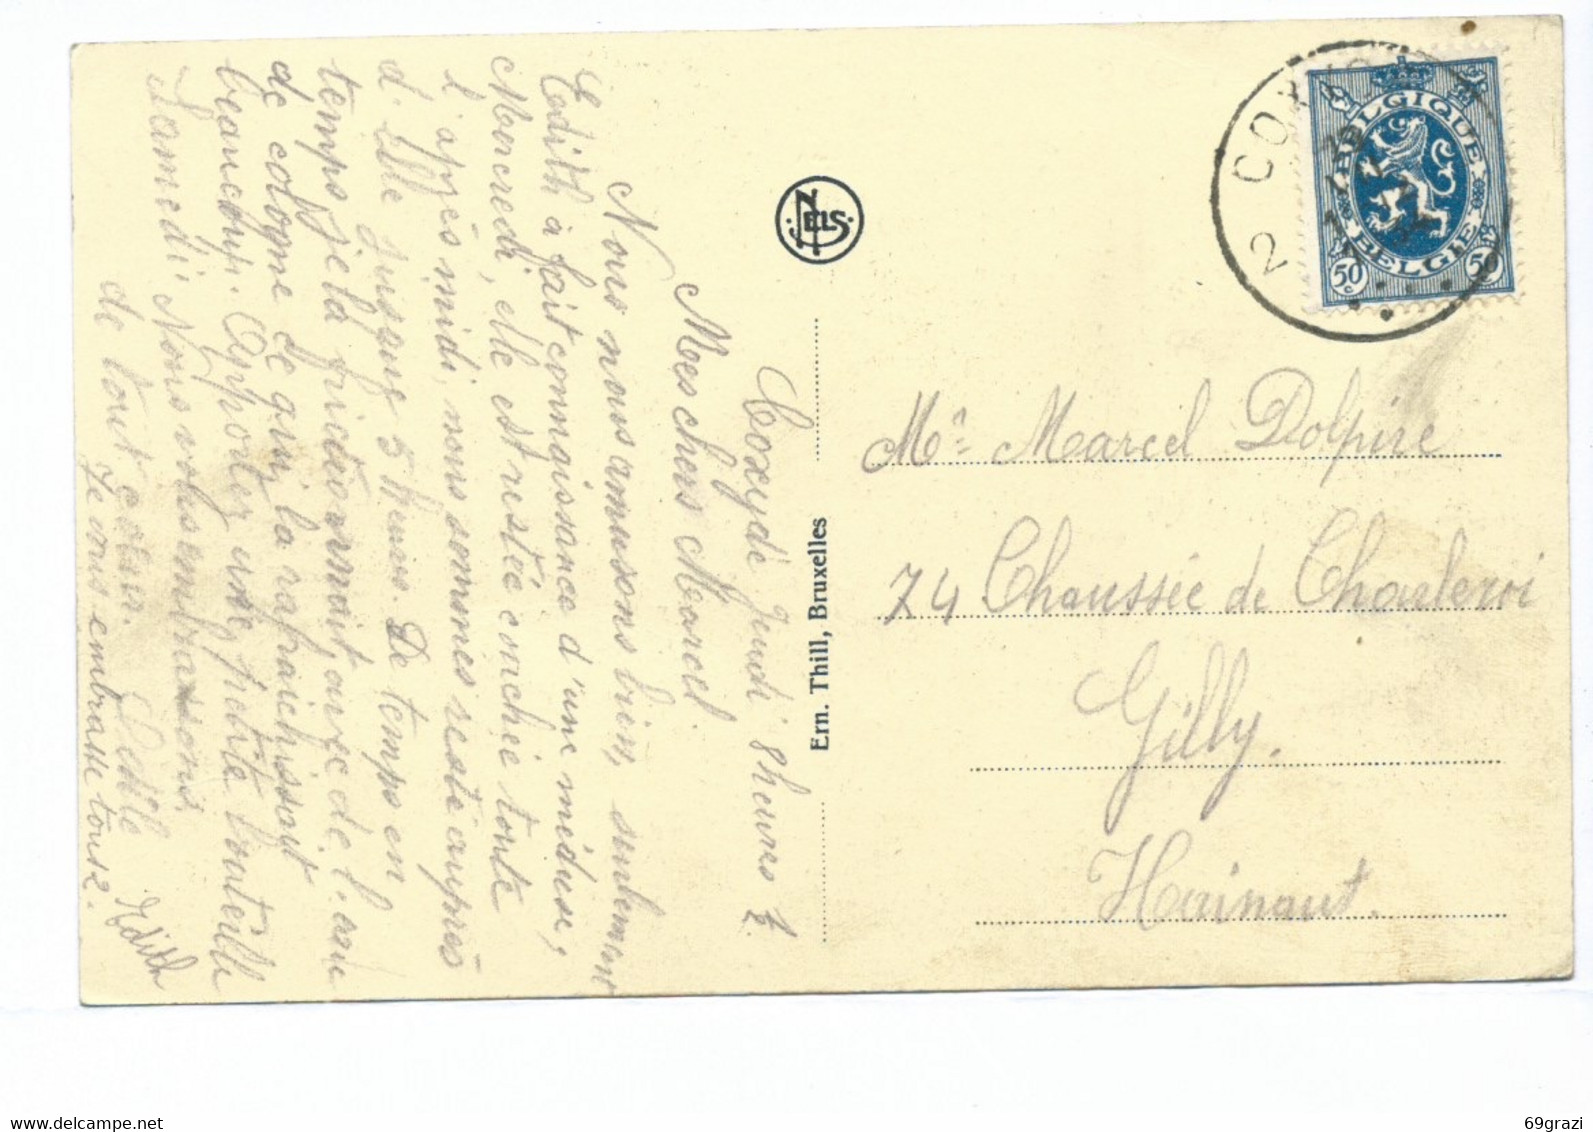 Coxyde Jeudi 8 heures ½
Mes chers Marcel
Nous nous amusons bien, seulement
Edith à fait connaissance d'une méduse,
Mercredi, elle est restée couchée toute
l'après midi, nous sommes resté auprès
d'Elle jusque 5 heures. De temps en
temps je la frictionnait avec de l'eau
de cologne ce qui la rafraichissait
beaucoup. Apportez une petite bouteille
Samedi. Nous vous embrassons
de tout cœur. Edith
Je vous embrasse tous 2.
NELS
Ern. Thill, Bruxelles
2 COX
BELGIQUE
BELGIE
50 c
50 c
Mr Marcel Dolpire
74 Chaussée de Charleroi
Gilly.
Hainaut.
delcampe.net
69grazi